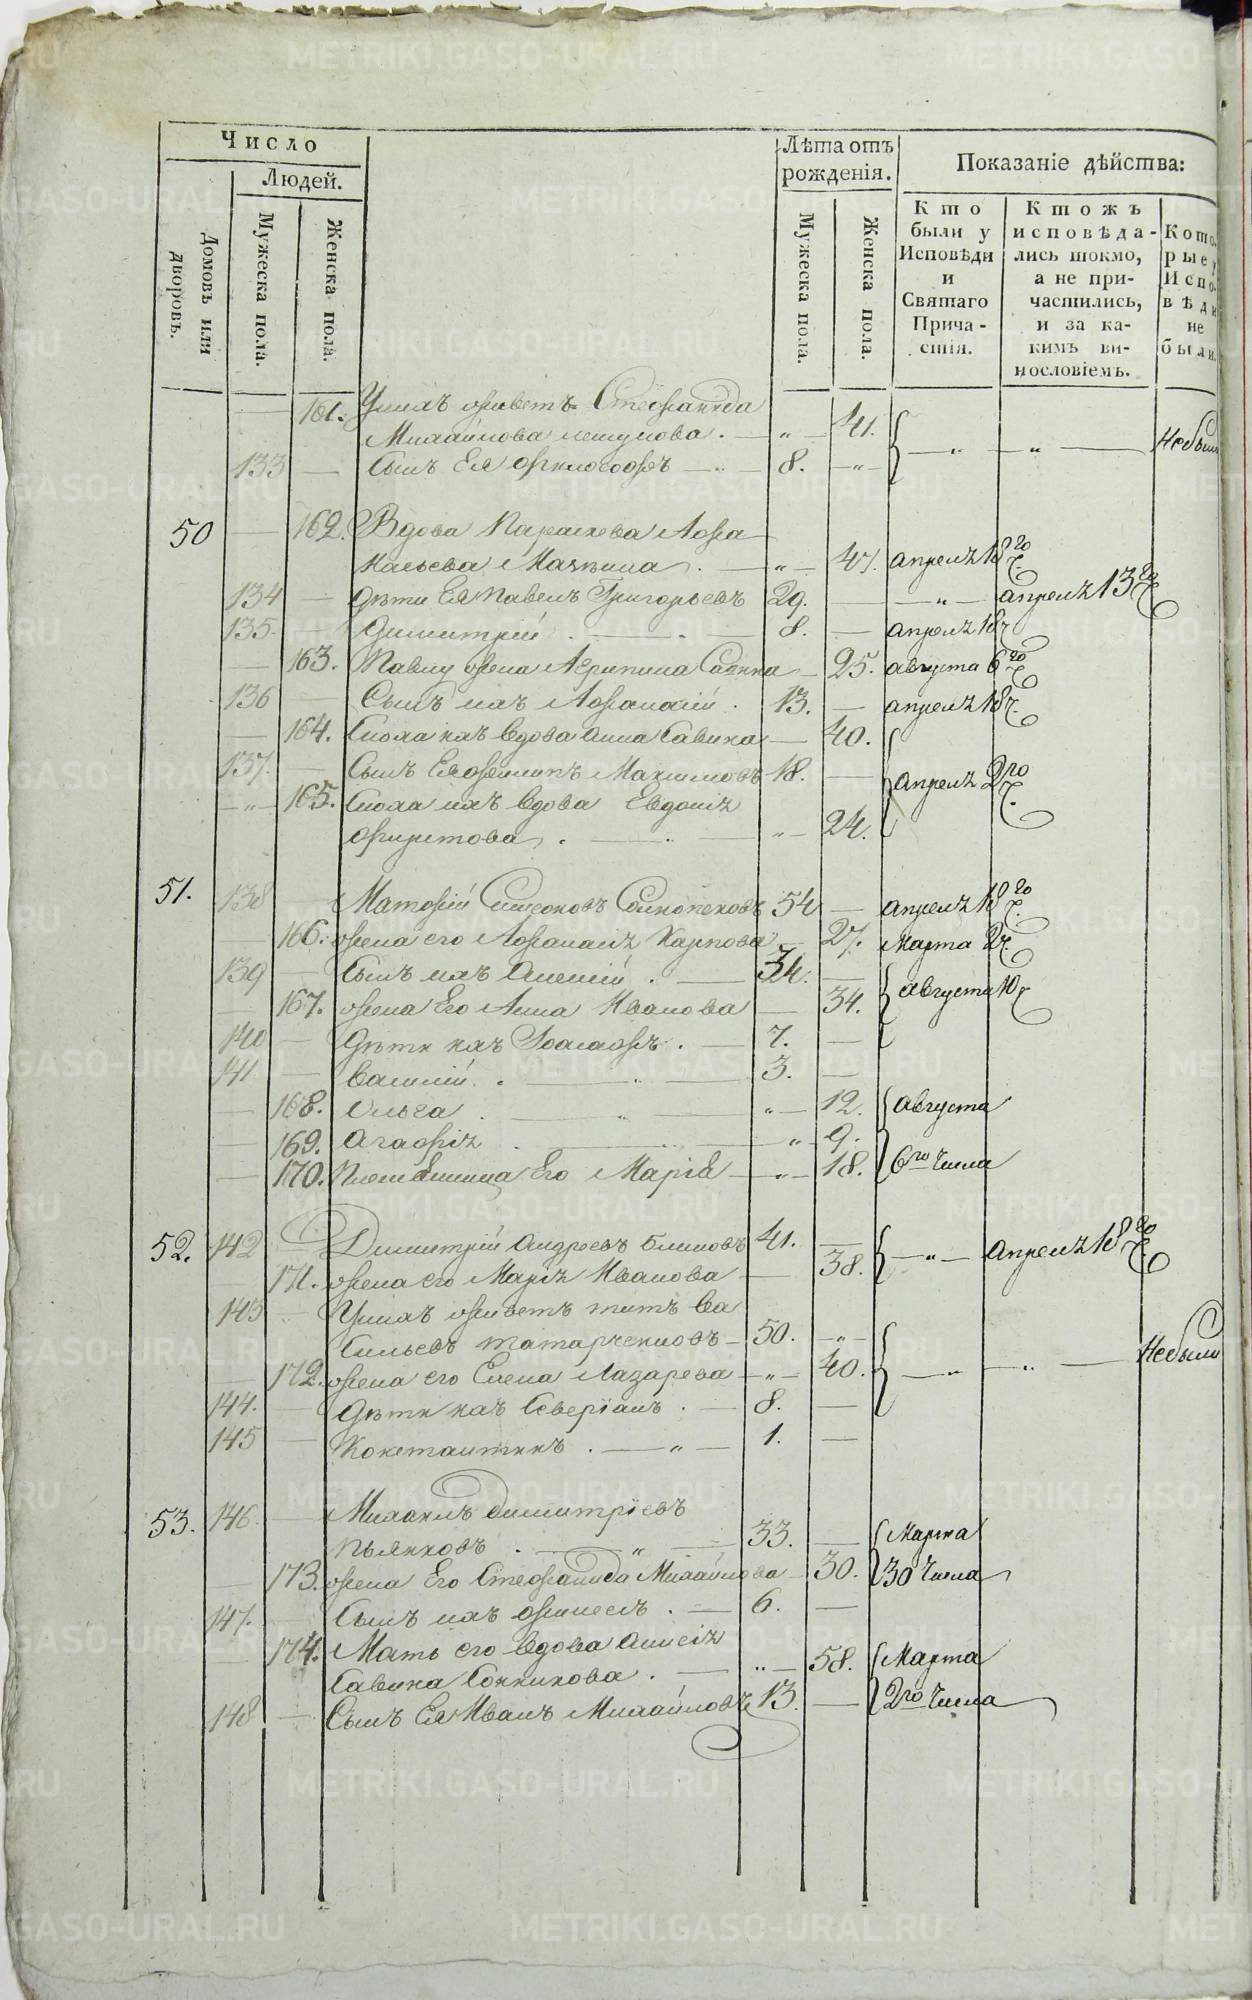 Число
Людей.
Домовъ или дворовъ.
Мужеска пола.
Женска пола.
Лѣта отъ рожденія.
Мужеска пола.
Женска пола.
Показаніе дѣйства:
Кто были у Исповѣди и Святаго Прича-стія.
Ктожъ исповѣда-лись токмо, а не при-частились, и за ка-кимъ ви-нословіемъ.
Кото-рые у Испо-вѣди не были.
161. Унихъ живетъ Стефанида
Михайлова — „ — 41. — „ — „ — Небыли
133 — Сынъ Ея Философъ — 8. — „ —
50 — 162. Вдова Параскева Афа
насьева — „ — 47. апреля 18го ч.
134 — Дѣти Ея Павелъ Григорьевъ 29. — — „ — апреля 13го ч.
135. — Димитрій . — 8. — апреля 18 ч.
— 163. Павлу жена Агрипина — 25. августа 6го ч.
136 — Сынъ ихъ Афанасій . 13. — апреля 18 ч.
— 164. Сноха ихъ вдова Анна Савина — 40.
137. — Сынъ Ея Филипъ Максимовъ 18. — апреля 2го ч.
— „ — 165. Сноха ихъ вдова Евдокія
— „ — 24.
51. 138 Матфій Симеоновъ 54 — апреля 18го ч.
— 166. жена его Афанасія Карпова — 27. Марта 2 ч.
139 — Сынъ ихъ Алексій . — 34. —
— 167. жена Его Анна Иванова — 34. августа 10 ч.
140 — Дѣти ихъ Іоасафъ . — 7. —
141 — Василій . — 3. —
— 168. Ольга . — „ — 12. августа
— 169. Агафія . — „ 9.
— 170. Племянница Его Марія — „ — 18. 6го Числа
52. 142 — Димитрій Андреевъ Блиновъ 41. — — „ — апреля 18го ч.
— 171. жена его Марія Иванова — 38.
143 — Унихъ живетъ титъ Ва
сильевъ татарченковъ — 50. — „ — — „ — „ — Небыли
— 172. жена его Елена Лазарева — „ — 40.
144. — Дѣти ихъ Северіанъ . — 8. —
145 — Констант инъ . — „ — 1. —
53. 146. — Михаилъ Димитріевъ
Пьянковъ . — „ — 33. — Марта
— 173. жена Его Стефанида Михайлова — 30. 30 Числа
147. — Сынъ ихъ . — 6. —
— 174. Мать его вдова
Савина . — „ — 58. Марта
148 — Сынъ Ея Иванъ Михайловъ 13. — 2го Числа